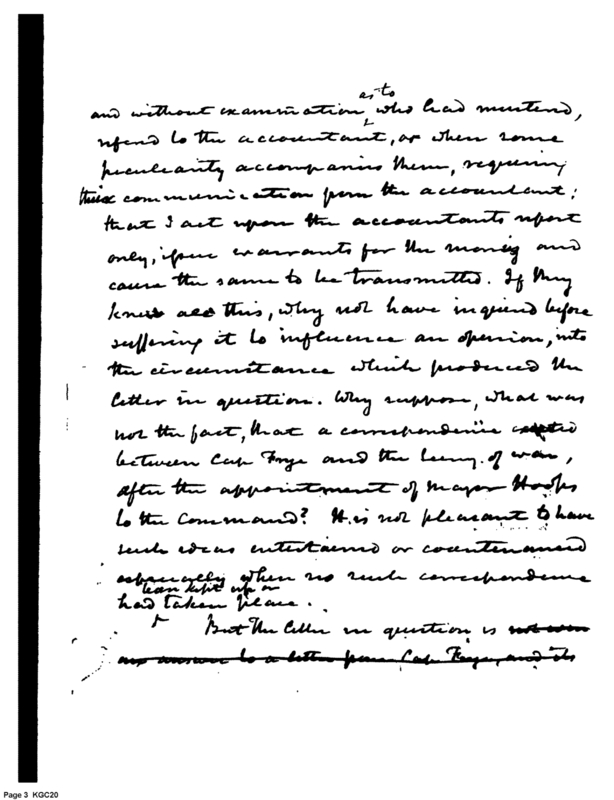 as to
and without examination, who had mustered,
referred to the accountant, or when some
peculiarity accompanies them, requiring
communication from the accountant;
that I act upon the accountants report
only; issue warrants for the money and
cause the same to be transmitted. If they
knew all this, why not have inquired before
suffering it to influence an opinion, into
the circumstance which produced the
letter in question. Why suppose, what was
not the fact, that a correspondence existed
between Cap Frye and the Secry. of war,
after the appointment of Mayor Hoops
to the command? It is not pleasant to have
such ideas entertained or countenanced
especially when no such correspondence
been kept up or
had taken place.
But the letter in question is not even
an answer to a letter from Cap Frye, and its
Page 3 KGC20